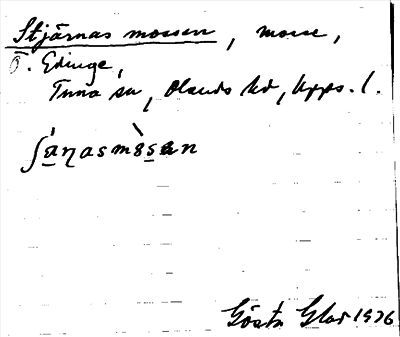 Stjärnas mossen, mosse,
Ö. Edinge,
Tuna sn, Olands hd, Upps. l.
ʃä́ŋasmòsen
Gösta Glas 1976